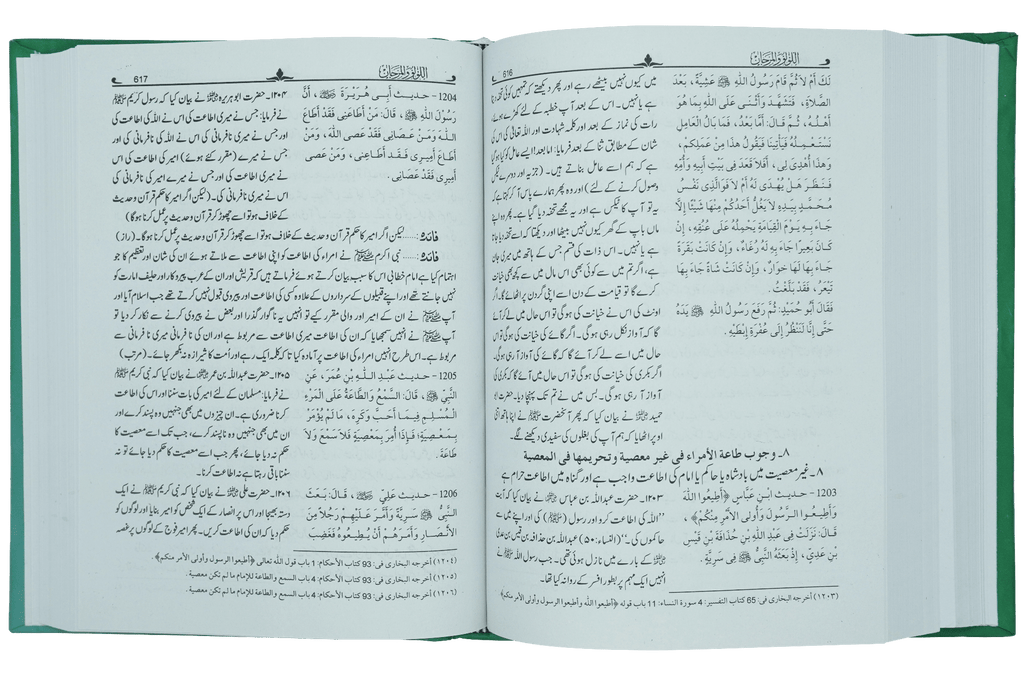 اللؤلؤ والمرجان
616
لَكَ أَمْ لَا ثُمَّ قَامَ رَسُولُ اللهِ ﷺ عَشِيَّةً، بَعْدَ
الصَّلَاةِ، فَتَشَهَّدَ وَأَثْنَى عَلَى اللهِ بِمَا هُوَ
أَهْلُهُ، ثُمَّ قَالَ: أَمَّا بَعْدُ، فَمَا بَالُ الْعَامِلِ
نَسْتَعْمِلُهُ فَيَأْتِينَا فَيَقُولُ هَذَا مِنْ عَمَلِكُمْ،
وَهَذَا أُهْدِيَ لِي، أَفَلَا قَعَدَ فِي بَيْتِ أَبِيهِ وَأُمِّهِ
فَنَظَرَ هَلْ يُهْدَى لَهُ أَمْ لَا فَوَالَّذِي نَفْسُ
مُحَمَّدٍ بِيَدِهِ لَا يَغُلُّ أَحَدُكُمْ مِنْهَا شَيْئًا إِلَّا
جَاءَ بِهِ يَوْمَ الْقِيَامَةِ يَحْمِلُهُ عَلَى عُنُقِهِ، إِنْ
كَانَ بَعِيرًا جَاءَ بِهِ لَهُ رُغَاءٌ، وَإِنْ كَانَتْ بَقَرَةً
جَاءَ بِهَا لَهَا خُوَارٌ، وَإِنْ كَانَتْ شَاةً جَاءَ بِهَا
تَيْعَرُ، فَقَدْ بَلَّغْتُ.
فَقَالَ أَبُو حُمَيْدٍ: ثُمَّ رَفَعَ رَسُولُ اللهِ ﷺ يَدَهُ
حَتَّى إِنَّا لَنَنْظُرُ إِلَى عُفْرَةِ إِبْطَيْهِ.
میں کیوں نہیں بیٹھے رہے اور پھر دیکھتے کہ تمہیں کوئی تحفہ دیتا
ہے یا نہیں۔ اس کے بعد آپ خطبہ کے لئے کھڑے ہوئے،
رات کی نماز کے بعد اور کلمہ شہادت اور اللہ تعالی کی اس کی
شان کے مطابق ثنا کے بعد فرمایا: اما بعد! ایسے عامل کو کیا ہو گیا
ہے کہ ہم اسے عامل بناتے ہیں۔ (جزیہ اور دوسرے ٹیکس
وصول کرنے کے لئے) اور وہ پھر ہمارے پاس آ کر کہتا ہے کہ
یہ تو آپ کا ٹیکس ہے اور یہ مجھے تحفہ دیا گیا ہے۔ پھر وہ اپنے
ماں باپ کے گھر کیوں نہیں بیٹھا اور دیکھتا کہ اسے تحفہ دیا جاتا
ہے یا نہیں۔ اس ذات کی قسم جس کے ہاتھ میں میری جان
ہے، اگر تم میں سے کوئی بھی اس مال میں سے کچھ بھی خیانت
کرے گا تو قیامت کے دن اسے اپنی گردن پر اٹھائے گا۔ اگر
اونٹ کی اس نے خیانت کی ہو گی تو اس حال میں لے کر آئے
گا کہ آواز نکل رہی ہو گی۔ اگر گائے کی خیانت کی ہو گی تو اس
حال میں اسے لے کر آئے گا کہ گائے کی آواز آ رہی ہو گی۔
اگر بکری کی خیانت کی ہو گی تو اس حال میں آئے گا کہ بکری کی
آواز آ رہی ہو گی۔ بس میں نے تم تک پہنچا دیا۔ حضرت ابو
حمید نے بیان کیا کہ پھر آنحضرت ﷺ نے اپنا ہاتھ اتنی
اوپر اٹھایا کہ ہم آپ کی بغلوں کی سفیدی دیکھنے لگے۔
۸۔ وجوب طاعة الأمراء فى غير معصية وتحريمها فى المعصية
۸۔ غیر معصیت میں بادشاہ یا حاکم یا امام کی اطاعت واجب ہے اور گناہ میں اطاعت حرام ہے
1203 - حديث ابْنِ عَبَّاسٍ ﴿أَطِيعُوا اللهَ
وَأَطِيعُوا الرَّسُولَ وَأُولِي الْأَمْرِ مِنْكُمْ﴾،
قَالَ: نَزَلَتْ فِي عَبْدِ اللهِ بْنِ حُذَافَةَ بْنِ قَيْسِ
بْنِ عَدِيٍّ، إِذْ بَعَثَهُ النَّبِيُّ ﷺ فِي سَرِيَّةٍ.
۱۲۰۳۔ حضرت عبداللہ بن عباس نے بیان کیا کہ آیت
”اللہ کی اطاعت کرو اور رسول (ﷺ) کی اور اپنے میں سے
حاکموں کی۔“ (النساء: ۵۰) عبداللہ بن حذافہ بن قیس بن عدی
کے بارے میں نازل ہوئی تھی۔ جب رسول اللہ ﷺ نے
انہیں ایک مہم پر بطور افسر کے روانہ کیا تھا۔
(۱۲۰۳) أخرجه البخارى فى: 65 كتاب التفسير: 4 سورة النساء: 11 باب قوله ﴿أطيعوا الله وأطيعوا الرسول وأولى الأمر منكم﴾.
اللؤلؤ والمرجان
617
1204 - حديث أَبِي هُرَيْرَةَ، أَنَّ
رَسُولَ اللهِ ﷺ، قَالَ: مَنْ أَطَاعَنِي فَقَدْ أَطَاعَ
اللهَ وَمَنْ عَصَانِي فَقَدْ عَصَى اللهَ، وَمَنْ
أَطَاعَ أَمِيرِي فَقَدْ أَطَاعَنِي، وَمَنْ عَصَى
أَمِيرِي فَقَدْ عَصَانِي.
۱۲۰۴۔ حضرت ابوہریرہ نے بیان کیا کہ رسول کریم ﷺ
نے فرمایا: جس نے میری اطاعت کی اس نے اللہ کی اطاعت کی
اور جس نے میری نافرمانی کی اس نے اللہ کی نافرمانی کی اور
جس نے میرے (مقرر کئے ہوئے) امیر کی اطاعت کی اس
نے میری اطاعت کی اور جس نے میرے امیر کی نافرمانی کی
اس نے میری نافرمانی کی۔ (لیکن اگر امیر کا حکم قرآن و حدیث
کے خلاف ہو تو اسے چھوڑ کر قرآن و حدیث پر عمل کرنا ہوگا)
فائدہ: ..... لیکن اگر امیر کا حکم قرآن و حدیث کے خلاف ہو تو اسے چھوڑ کر قرآن و حدیث پر عمل کرنا ہوگا۔ (راز)
فائدہ: ..... نبی اکرم ﷺ نے امراء کی اطاعت کو اپنی اطاعت سے ملاتے ہوئے ان کی شان اور تعظیم کا جو
اہتمام کیا ہے امام خطابی اس کا سبب بیان کرتے ہوئے فرماتے ہیں کہ قریش اور ان کے عرب پیروکار اور حلیف امارت کو
نہیں جانتے تھے اور اپنے قبیلوں کے سرداروں کے علاوہ کسی کی اطاعت اور پیروی قبول نہیں کرتے تھے جب اسلام آیا اور
آپ ﷺ نے ان کے امیر اور والی مقرر کیے تو انہیں یہ ناگوار گذرا اور بعض نے پیروی کرنے سے انکار کر دیا تو
آپ ﷺ نے انہیں سمجھایا کہ ان کی اطاعت میری اطاعت سے مربوط ہے اور ان کی نافرمانی میری نافرمانی سے
مربوط ہے۔ اس طرح انہیں امراء کی اطاعت پر آمادہ کیا تا کہ کلمہ ایک رہے اور اُمت کا شیرازہ نہ بکھر جائے۔ (مرتب)
1205 - حديث عَبْدِ اللهِ بْنِ عُمَرَ، عَنِ
النَّبِيِّ ﷺ، قَالَ: السَّمْعُ وَالطَّاعَةُ عَلَى الْمَرْءِ
الْمُسْلِمِ فِيمَا أَحَبَّ وَكَرِهَ، مَا لَمْ يُؤْمَرْ
بِمَعْصِيَةٍ، فَإِذَا أُمِرَ بِمَعْصِيَةٍ فَلَا سَمْعَ وَلَا
طَاعَةَ.
۱۲۰۵۔ حضرت عبداللہ بن عمر نے بیان کیا کہ نبی کریم ﷺ
نے فرمایا: مسلمان کے لئے امیر کی بات سننا اور اس کی اطاعت
کرنا ضروری ہے۔ ان چیزوں میں بھی جنہیں وہ پسند کرے اور
ان میں بھی جنہیں وہ ناپسند کرے، جب تک اسے معصیت کا
حکم نہ دیا جائے، پھر جب اسے معصیت کا حکم دیا جائے تو نہ
سننا باقی رہتا ہے نہ اطاعت کرنا۔
1206 - حديث عَلِيٍّ، قَالَ: بَعَثَ
النَّبِيُّ ﷺ سَرِيَّةً وَأَمَّرَ عَلَيْهِمْ رَجُلًا مِنَ
الْأَنْصَارِ وَأَمَرَهُمْ أَنْ يُطِيعُوهُ فَغَضِبَ
۱۲۰۶۔ حضرت علی نے بیان کیا کہ نبی کریم ﷺ نے ایک
دستہ بھیجا اور اس پر انصار کے ایک شخص کو امیر بنایا اور لوگوں کو
حکم دیا کہ ان کی اطاعت کریں۔ پھر امیر فوج کے لوگوں پر غصہ
(۱۲۰۴) أخرجه البخارى فى: 93 كتاب الأحكام: 1 باب قول الله تعالى ﴿أطيعوا الرسول وأولى الأمر منكم﴾.
(۱۲۰۵) أخرجه البخارى فى: 93 كتاب الأحكام: 4 باب السمع والطاعة للإمام ما لم تكن معصية.
(۱۲۰۶) أخرجه البخارى فى: 93 كتاب الأحكام: 4 باب السمع والطاعة للإمام ما لم تكن معصية.